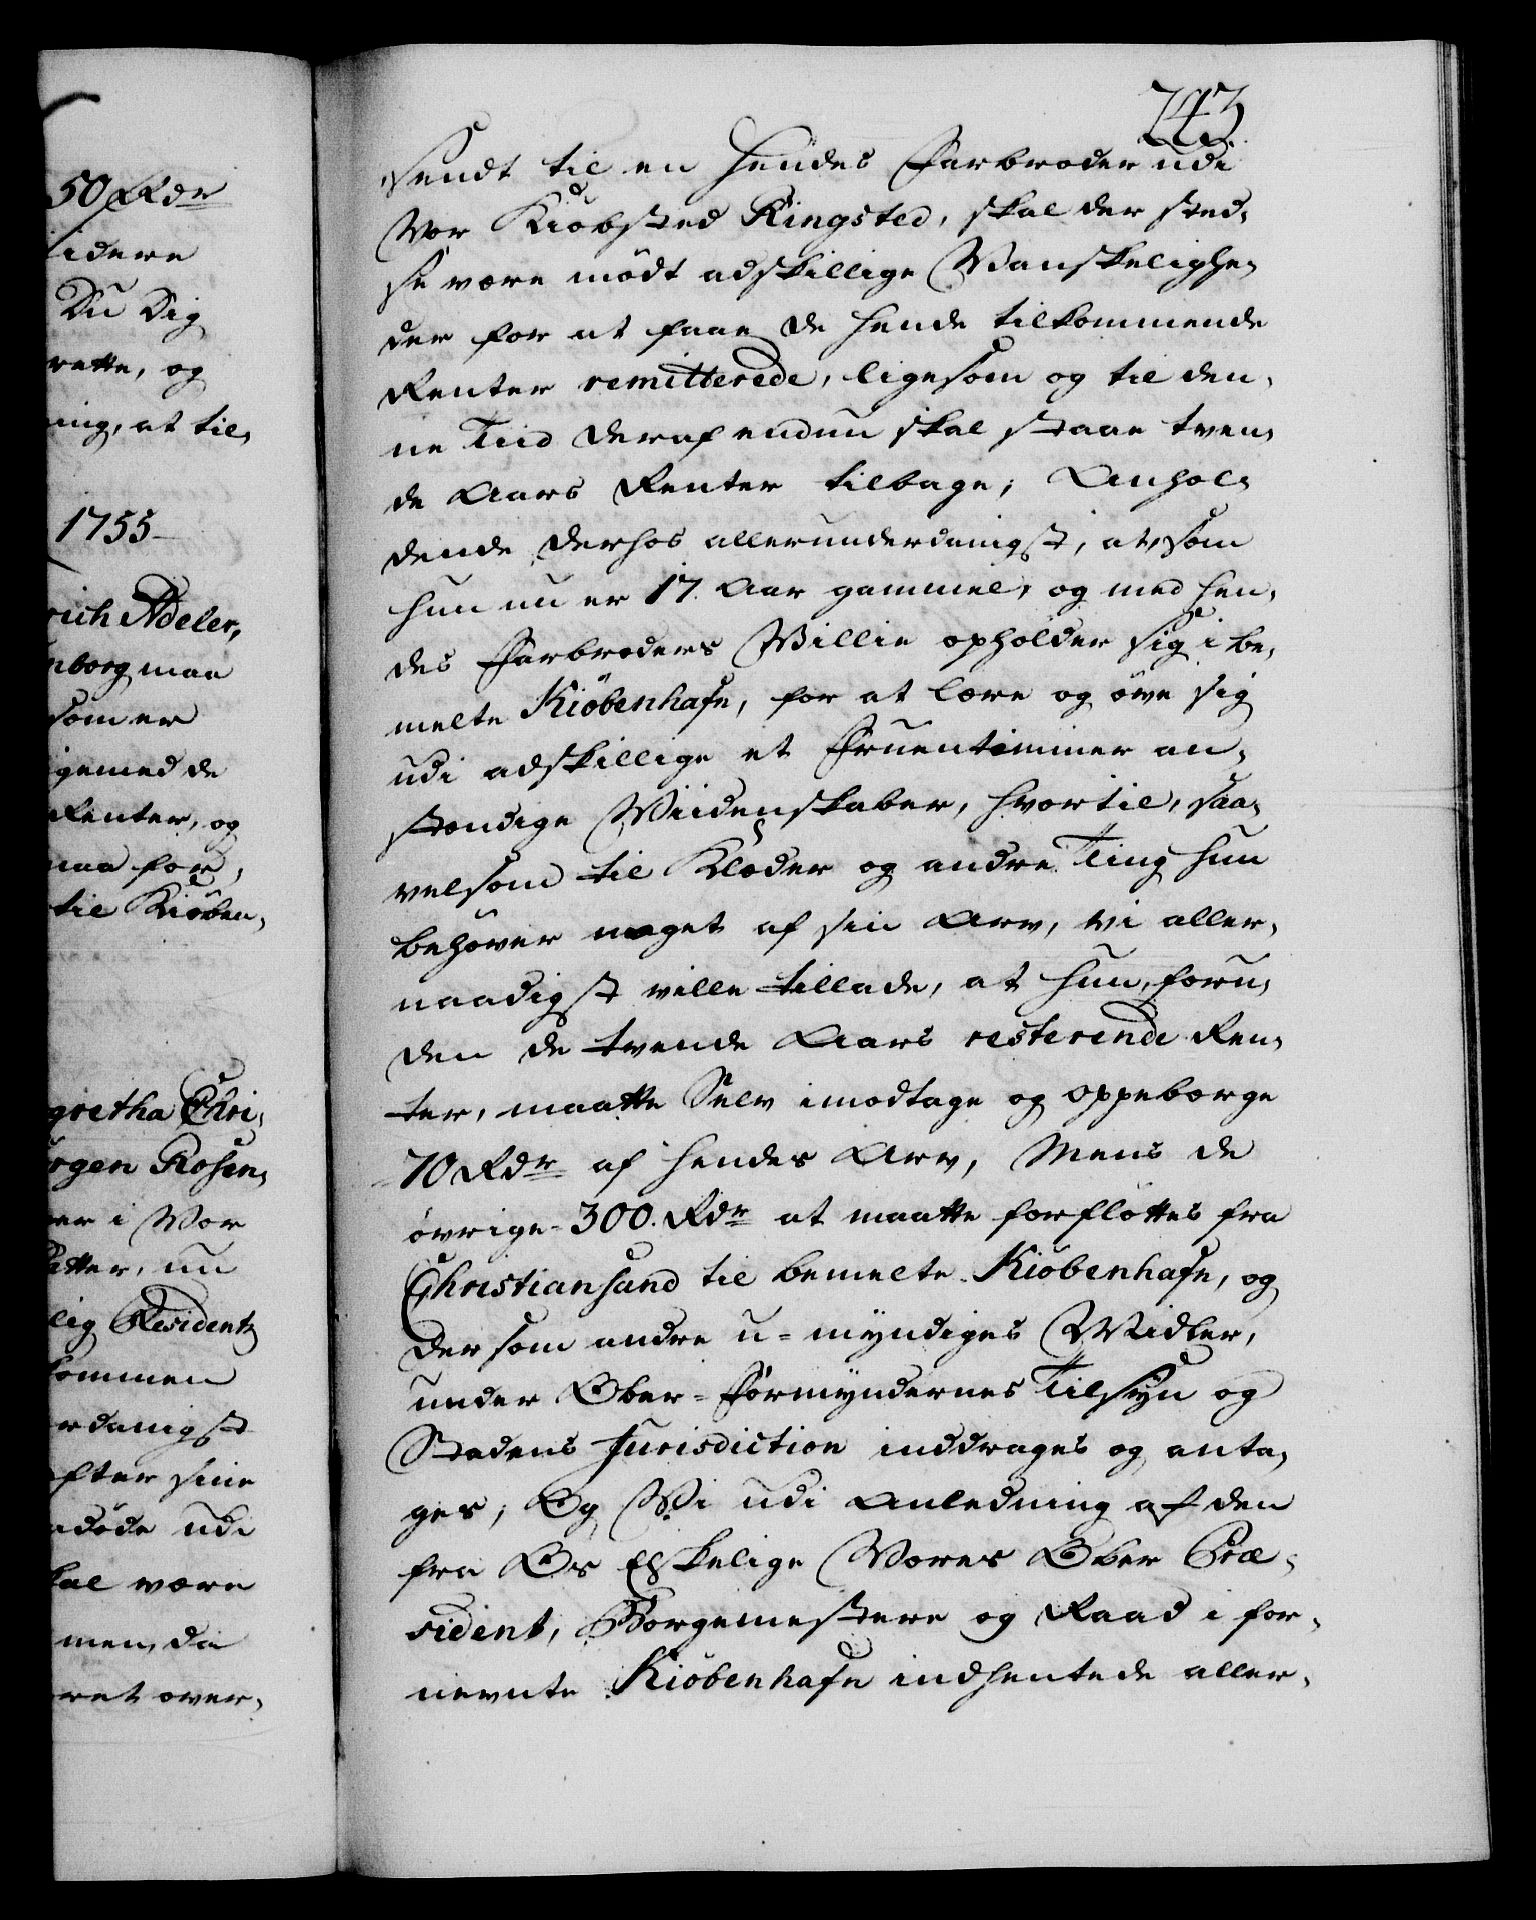 50 Rdr
idere
Du Dig
rette, og
ning, at til,
1755
rich Adeler,
nborg maa
som er
igemed de
Renter, og
maa for,
til Kiöben,
gretha Chri,
rgen Rosen,
er i Vor
atter, nu
lig Residentz
kommen
rdanigst
efter sine
döde udi
kal være
men, da
ret over,
243
sendt til en hendes Farbroder udi
Vor Kiöbsted Ringsted, skal der sted,
se være mödt adskillige Vanskelighe,
der for at faae de hende tilkommende
Renter remitterede, ligesom og til den,
ne Tiid deraf endnu skal staae tven,
de Aars Renter tilbage; Anhol,
dende derhos allerunderdanigst, at, som
hun nu er 17. Aar gammel, og med hen,
des Farbroders Villie opholder sig i be,
melte Kiöbenhafn, for at lære og öve sig
udi adskillige et Fruentimmer an,
stændige Viidenskaber, hvortil, saa,
velsom til Klæder og andre Ting hun
behöver noget af sin Arv, vi aller,
naadigst ville tillade, at hun, foru,
den de tvende Aars resterende Ren,
ter, maatte Selv imodtage og oppebærge
70 Rdr af hendes Arv, Mens de
övrige 300. Rdr at maatte forflöttes fra
Christiansand til bemelte Kiöbenhafn, og
der som andre u-myndiges Midler,
under Ober-Formyndernes Tilsyn og
Stadens Jurisdiction inddrages og anta,
ges; Og Vi udi Anledning af den
fra Os Elskelige Vores Ober Præ,
sident, Borgemestere og Raad i for,
nevnte Kiöbenhafn indhentede aller,